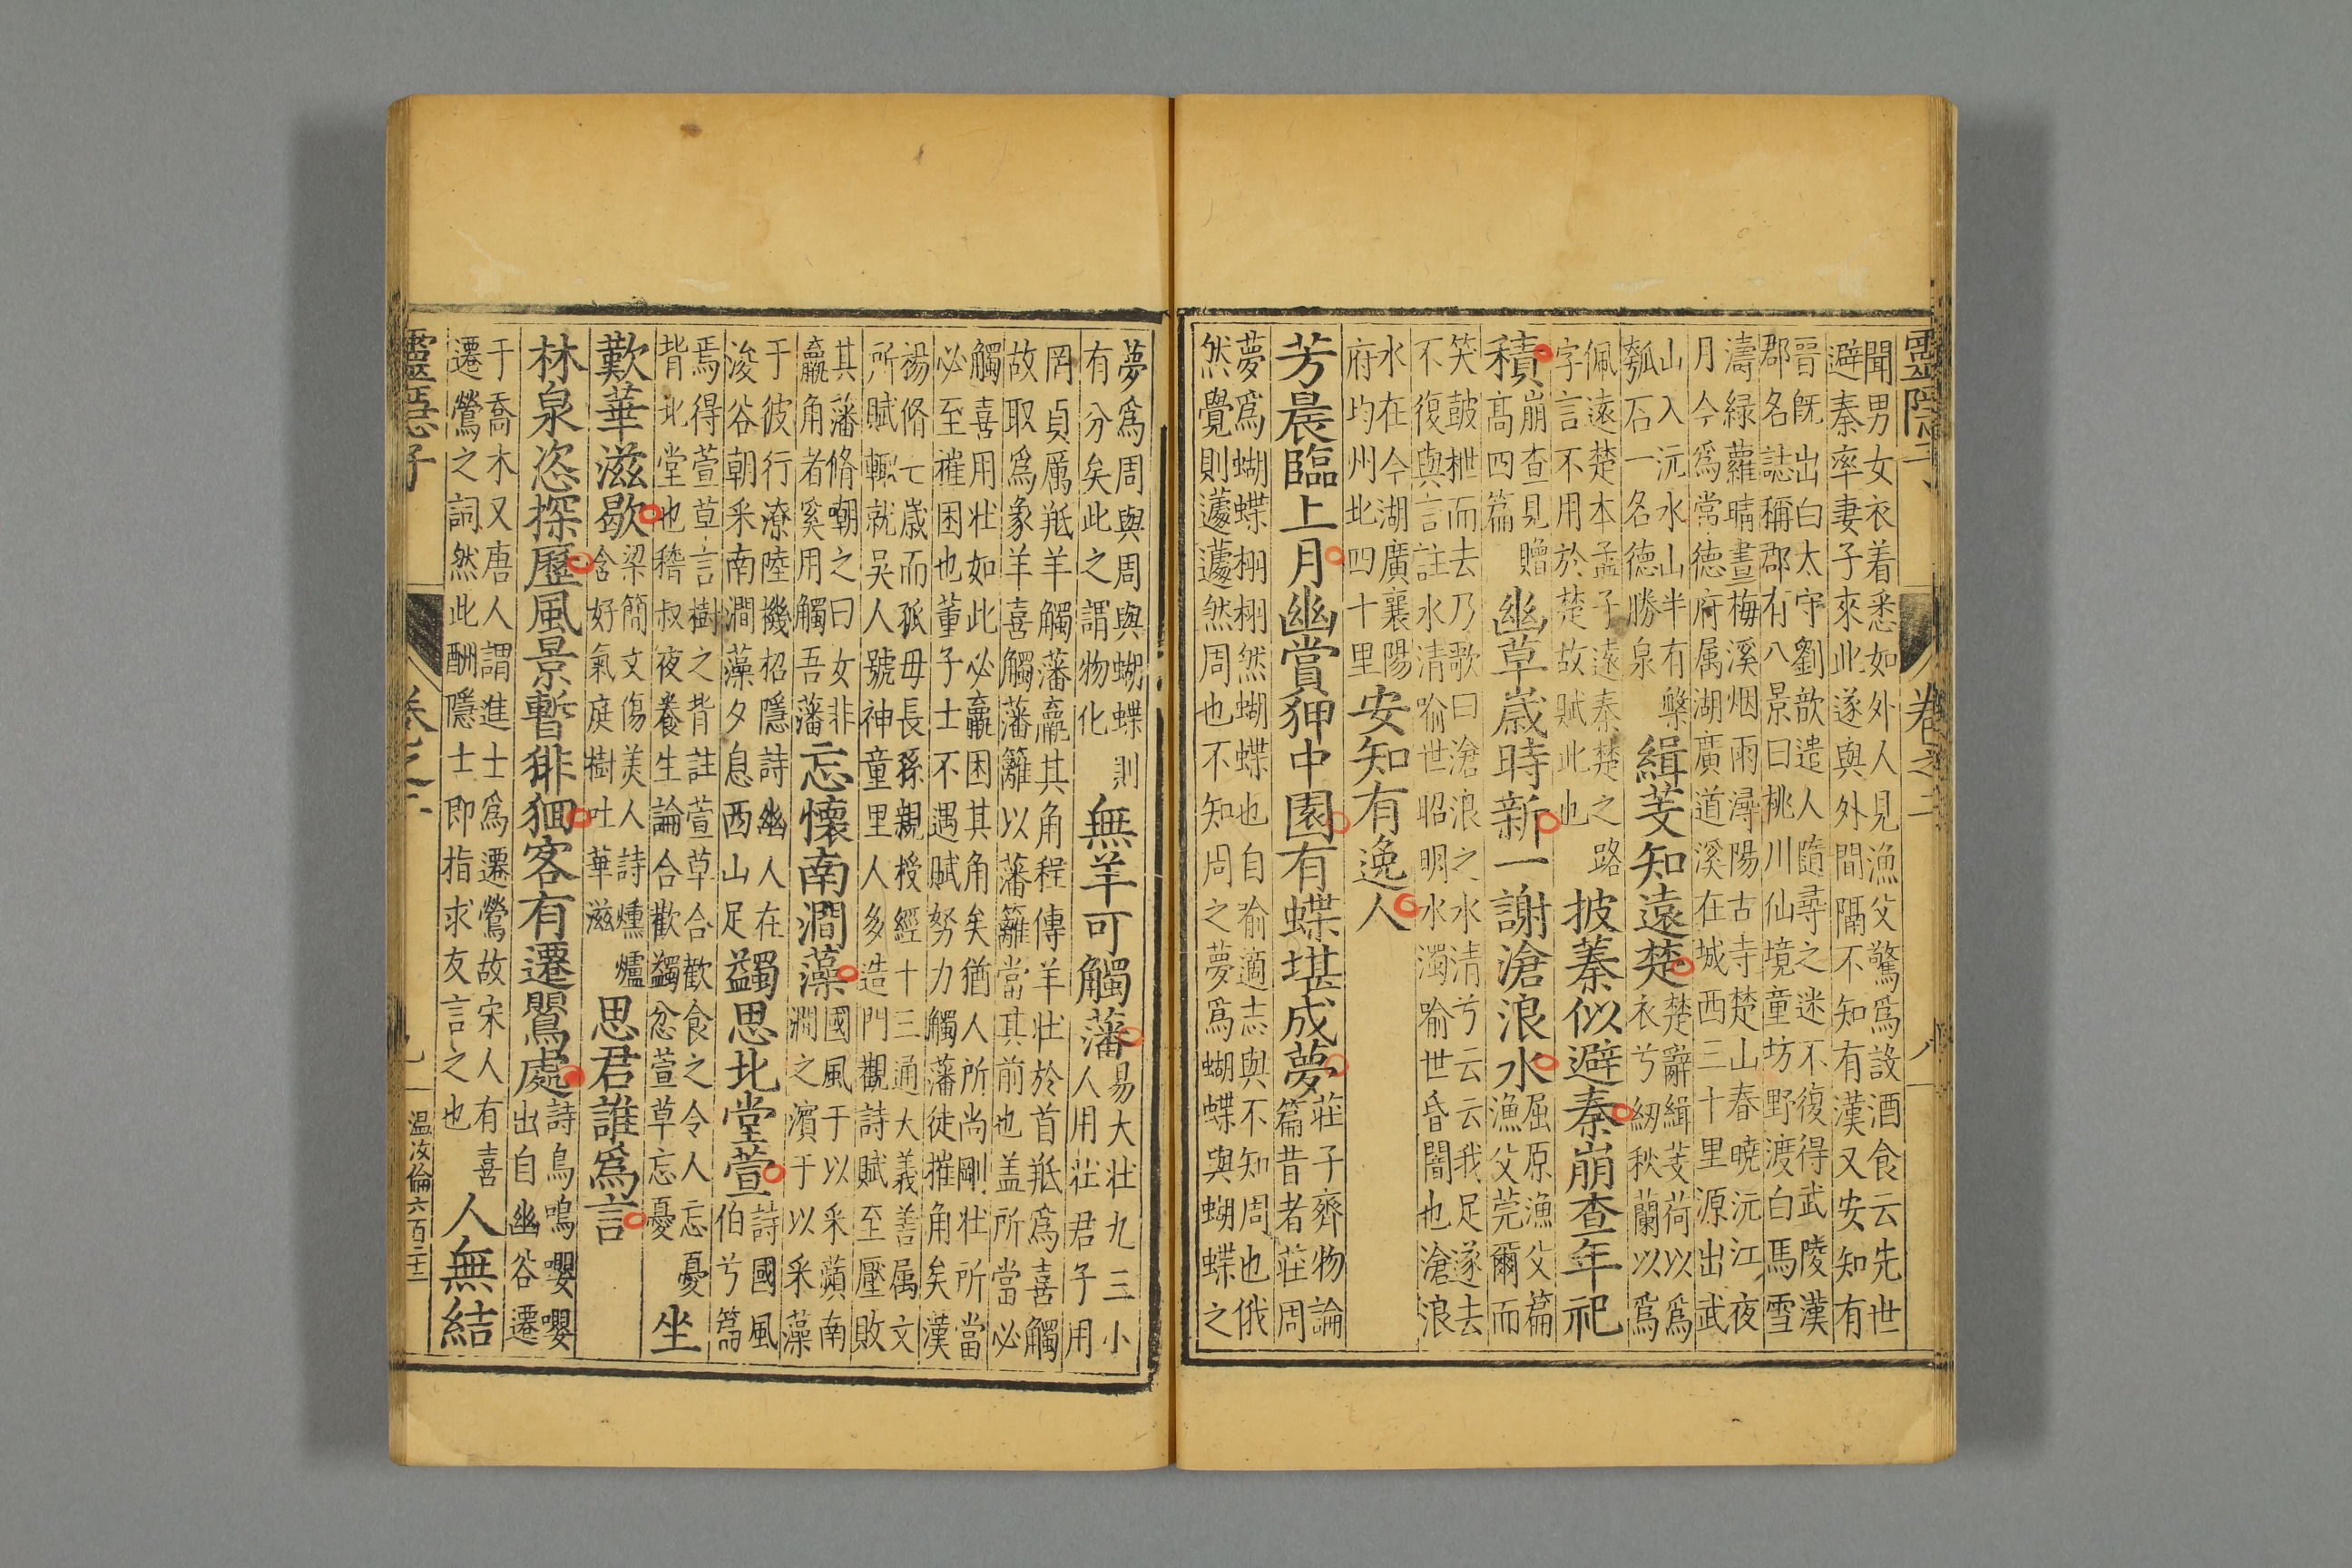 靈隱子
卷之二
八
聞男女衣着悉如外人見漁父驚爲設酒食云先世
避秦率妻子來此遂與外間隔不知有漢又安知有
晉旣出白太守劉歆遣人隨尋之迷不復得武陵漢
郡名誌稱郡有八景曰桃川仙境童坊野渡白馬雪
濤緑蘿晴晝梅溪烟雨潯陽古寺楚山春曉沅江夜
月今爲常德府属湖廣道溪在城西三十里源出武
山入沅水山半有槃
瓠石一名德勝泉
緝芰知遠楚
楚辭緝芰荷以爲
衣兮紉秋蘭以爲
佩遠楚本孟子遠秦楚之路
字言不用於楚故賦此也
披蓁似避秦崩查年祀
積
崩查見贈
高四篇
幽草歲時新一謝滄浪水
屈原漁父篇
漁父莞爾而
笑鼓枻而去乃歌曰滄浪之水清兮云云我足遂去
不復與言註水清喻世昭明水濁喻世昏闇也滄浪
水在今湖廣襄陽
府均州北四十里
安知有逸人
芳晨臨上月幽賞狎中園有蝶堪成夢
莊子齊物論
篇昔者莊周
夢爲蝴蝶栩栩然蝴蝶也自喻適志與不知周也俄
然覺則蘧蘧然周也不知周之夢爲蝴蝶與蝴蝶之
夢爲周與周與蝴蝶則
有分矣此之謂物化
無羊可觸藩
易大壮九三小
人用壮君子用
罔貞厲羝羊觸藩羸其角程傳羊壮於首羝爲喜觸
故取爲象羊喜觸藩籬以藩籬當其前也盖所當必
觸喜用壮如此必羸困其角矣猶人所尚剛壮所當
必至摧困也董子士不遇賦努力觸藩徒摧角矣漢
楊脩七歲而孤毋長孫親授經十三通大義善属文
所賦輒就吳人號神童里人多造門觀詩賦至壓敗
其藩脩嘲之曰女非
羸角者奚用觸吾藩
忘懷南澗藻
國風于以采蘋南
澗之濱于以采藻
于彼行潦陸機招隱詩幽人在
浚谷朝采南澗藻夕息西山足
蠲思北堂萱
詩國風
伯兮篇
焉得萱草言樹之背註萱草合歡食之令人忘憂
背北堂也嵇叔夜養生論合歡蠲忿萱草忘憂
坐
歎華滋歇
梁簡文傷美人詩燻爐
含好氣庭樹吐華滋
思君誰爲言
林泉恣探歷風景暫徘徊客有遷鶯處
詩鳥鳴嚶嚶
出自幽谷遷
于喬木又唐人謂進士爲遷鶯故宋人有喜
遷鶯之詞然此酬隱士即指求友言之也
人無結
靈隱子
卷之二
九
温汝倫六百二十二